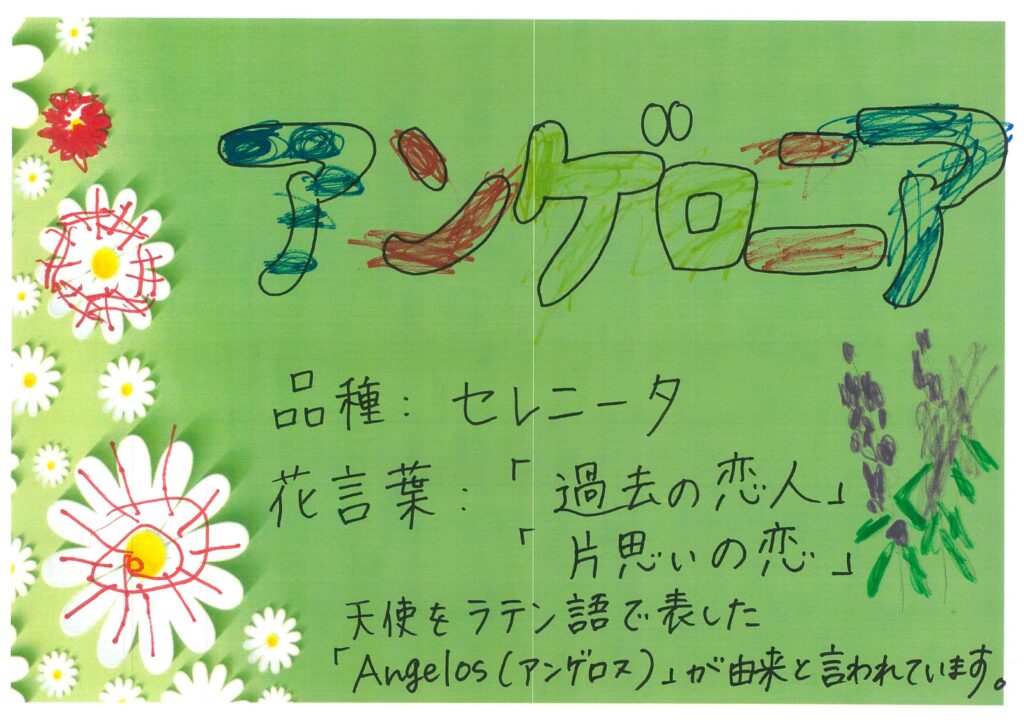 アンゲロニア
品種: セレニータ
花言葉:「過去の恋人」
「片思いの恋」
天使をラテン語で表した
「Angelos(アンゲロス)」が由来と言われています。